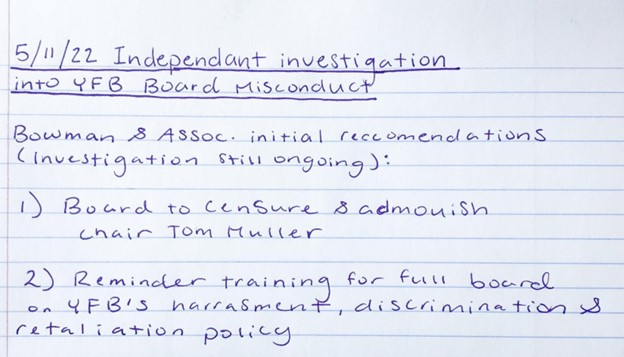 5/11/22 Independant investigation
into YFB Board Misconduct
Bowman & Assoc. initial reccomendations
(Investigation still ongoing):
1) Board to censure & admonish
chair Tom Muller
2) Reminder training for full board
on YFB's harrasment, discrimination &
retaliation policy